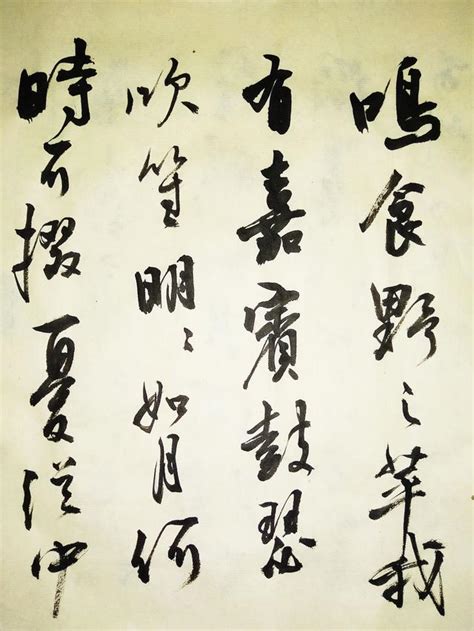 鳴食野之苹我
有嘉賓鼓瑟
吹笙明〻如月何
時可掇憂從中